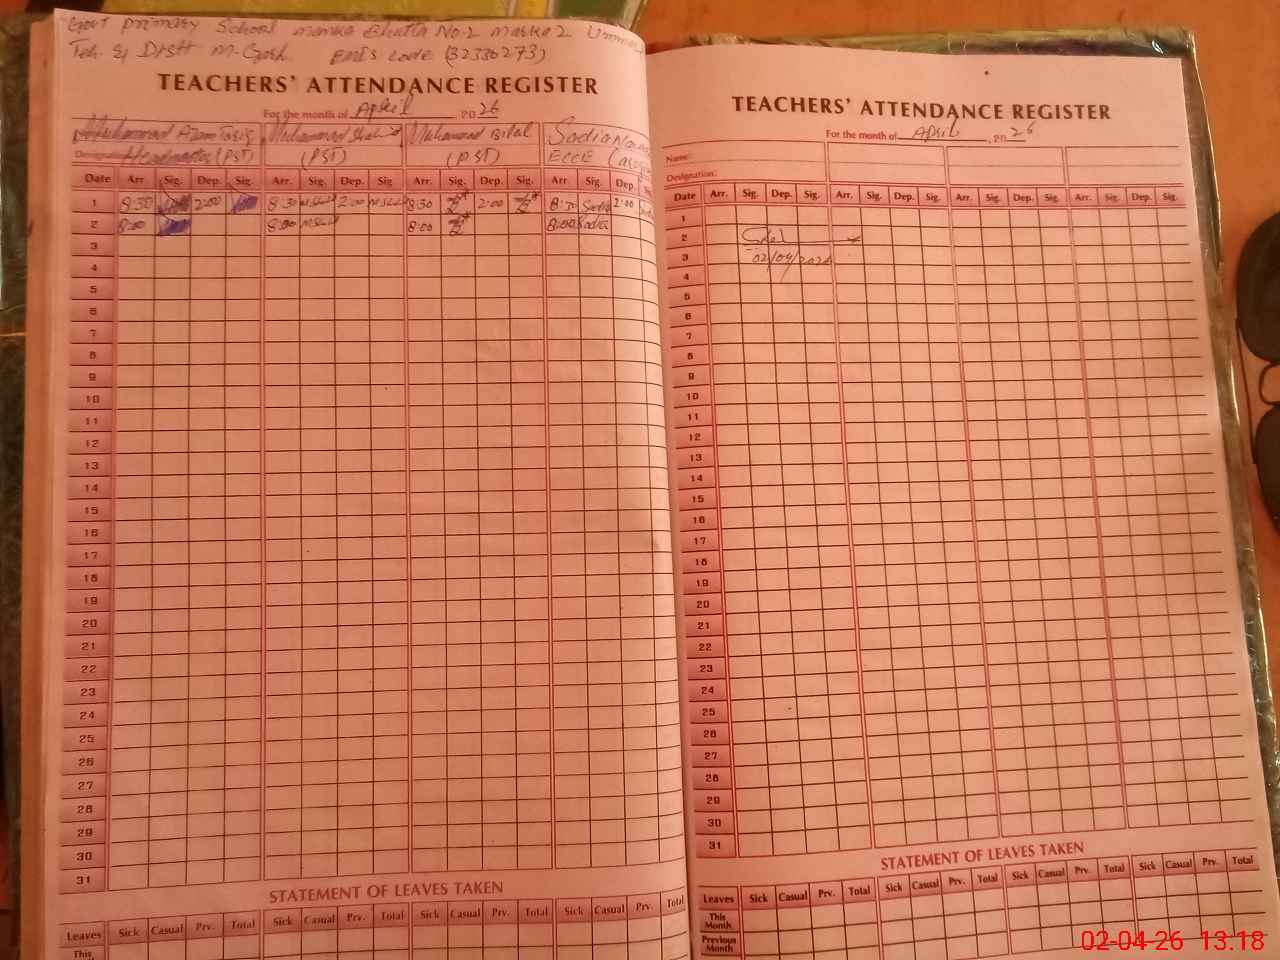 Govt Primary School Manika Bhutta No.2 Markaz Ummar
Teh & Distt M-Garh EMIS code (32330273)
TEACHERS' ATTENDANCE REGISTER
For the month of April 2026
Muhammad Azam Tariq Muhammad Muhammad Bilal Sadia
Designation Headmaster (PST) (PST) (PST) ECCE
Date Arr. Sig. Dep. Sig. Arr. Sig. Dep. Sig Arr. Sig. Dep. Sig. Arr. Sig. Dep.
1 8:30 2:00 8:30 2:00 8:30 2:00 8:30 Sadia 2:00
2 8:00 8:00 8:00 8:00 Sadia
3
4
5
6
7
8
9
10
11
12
13
14
15
16
17
18
19
20
21
22
23
24
25
26
27
28
29
30
31
STATEMENT OF LEAVES TAKEN
Leaves Sick Casual Prv. Total Sick Casual Prv. Total Sick Casual Prv. Total
This
TEACHERS' ATTENDANCE REGISTER
For the month of April, 2026
Name:
Designation:
Date Arr. Sig. Dep. Sig. Arr. Sig. Dep. Sig. Arr. Sig. Dep. Sig. Arr. Sig. Dep. Sig.
1
2
3 02/04/2026
4
5
6
7
8
9
10
11
12
13
14
15
16
17
18
19
20
21
22
23
24
25
26
27
28
29
30
31
STATEMENT OF LEAVES TAKEN
Leaves Sick Casual Prv. Total Sick Casual Prv. Total Sick Casual Prv. Total Sick Casual Prv. Total
This Month
Previous Month
02-04-26 13:18